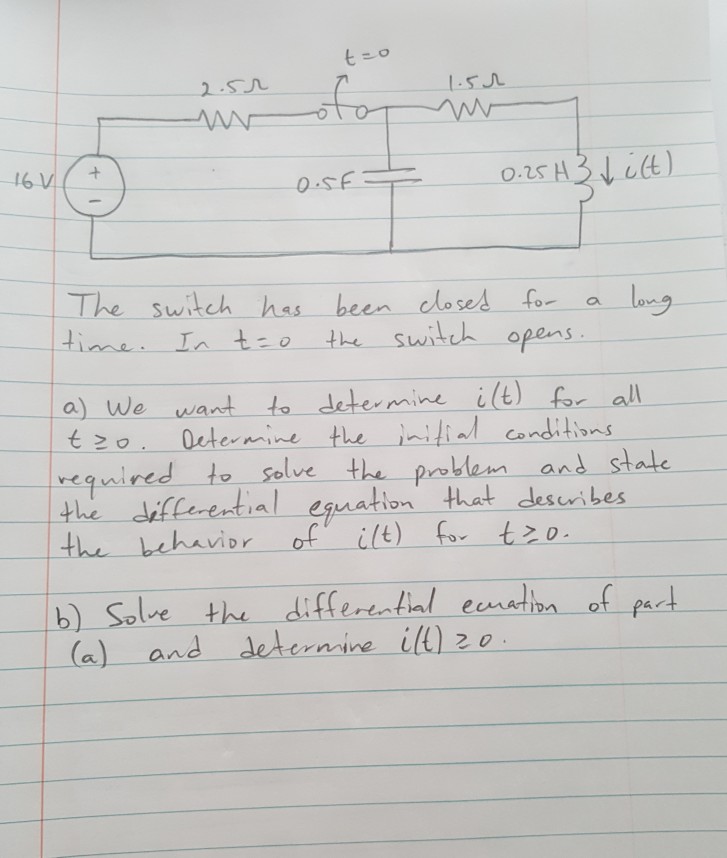 t=0
2.5Ω
1.5Ω
16V
+
-
0.5F
0.25H
↓i(t)
The switch has been closed for a long
time. In t=0 the switch opens.
a) We want to determine i(t) for all
t≥0. Determine the initial conditions
required to solve the problem and state
the differential equation that describes
the behavior of i(t) for t≥0.
b) Solve the differential ecuation of part
(a) and determine i(t)≥0.